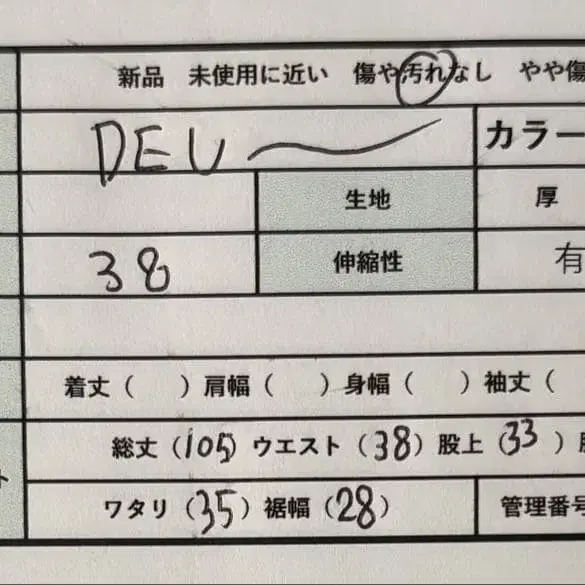 新品 未使用に近い 傷や汚れなし やや傷
DEU カラー
生地 厚
38 伸縮性 有
着丈( )肩幅( )身幅( )袖丈(
総丈(105)ウエスト(38)股上(33)
ワタリ(35)裾幅(28) 管理番号